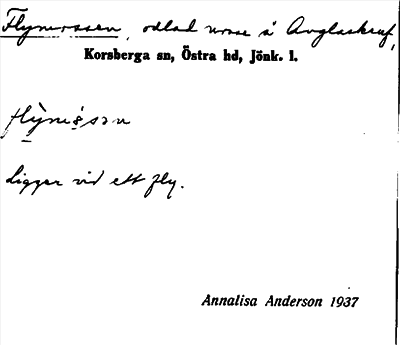 Flymossen, odlad mosse å Avglaskruf,
Korsberga sn, Östra hd, Jönk. l.
flỳmòsən
Ligger vid ett fly.
Annalisa Anderson 1937